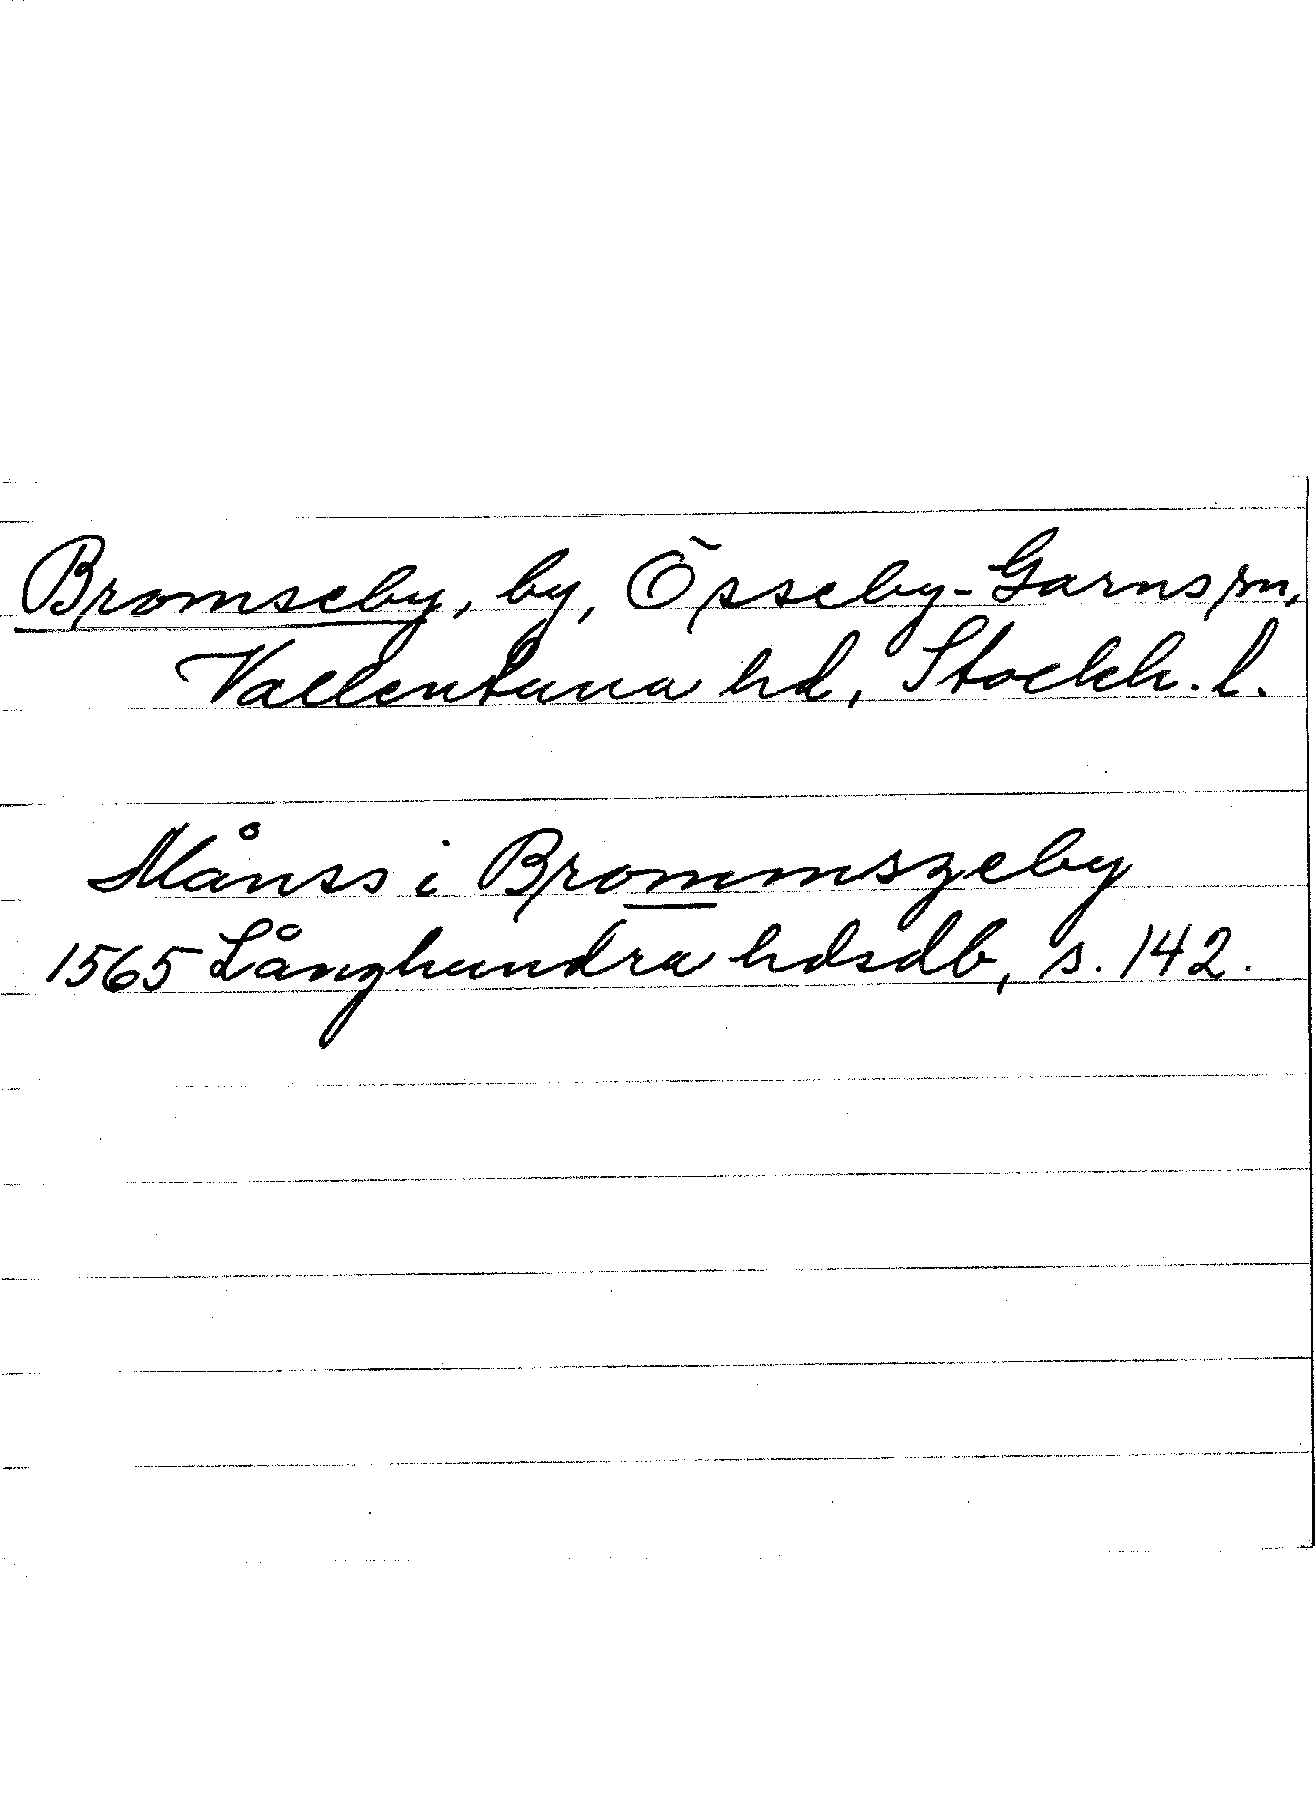 Bromseby, by, Össeby-Garns sn,
Vallentuna hd, Stockh. l.
Månss i Brommszeby
1565 Långhundra hdsdb, s. 142.